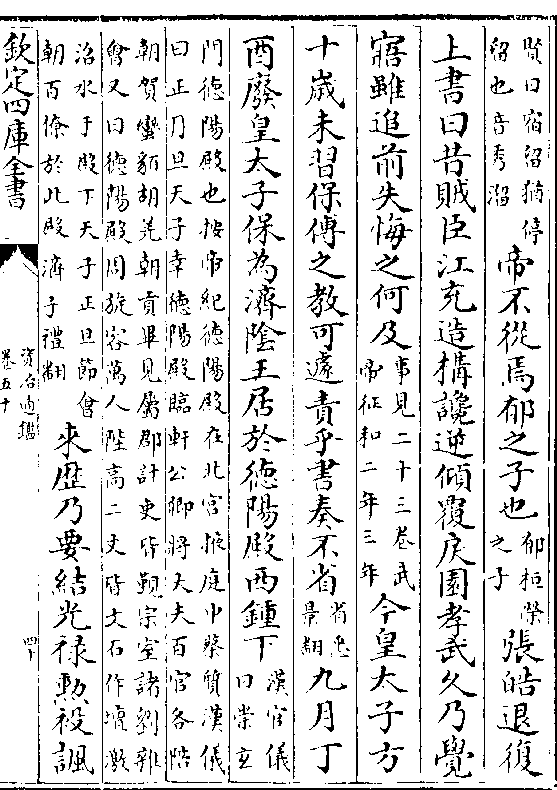 賢曰宿留猶停
留也音秀溜
帝不從焉郁之子也
郁桓榮
之子
張皓退復
上書曰昔賊臣江充造構讒逆傾覆戾園孝武久乃覺
寤雖追前失悔之何及
事見二十三卷武
帝征和二年三年
今皇太子方
十歲未習保傅之教可遽責乎書奏不省
省悉
景翻
九月丁
酉廢皇太子保為濟陰王居於德陽殿西鍾下
漢官儀
曰崇玄
門德陽殿也按帝紀德陽殿在北宫掖庭中蔡質漢儀
曰正月旦天子幸德陽殿臨軒公卿將大夫百官各陪
朝賀蠻貊胡羌朝貢畢見屬郡計吏皆覲宗室諸劉雜
會又曰德陽殿周旋容萬人陛高二丈皆文石作壇激
沼水于殿下天子正旦節會
朝百僚於此殿濟子禮翻
來歴乃要結光禄勲祋諷
欽定四庫全書
資治通鑑
卷五十
四十